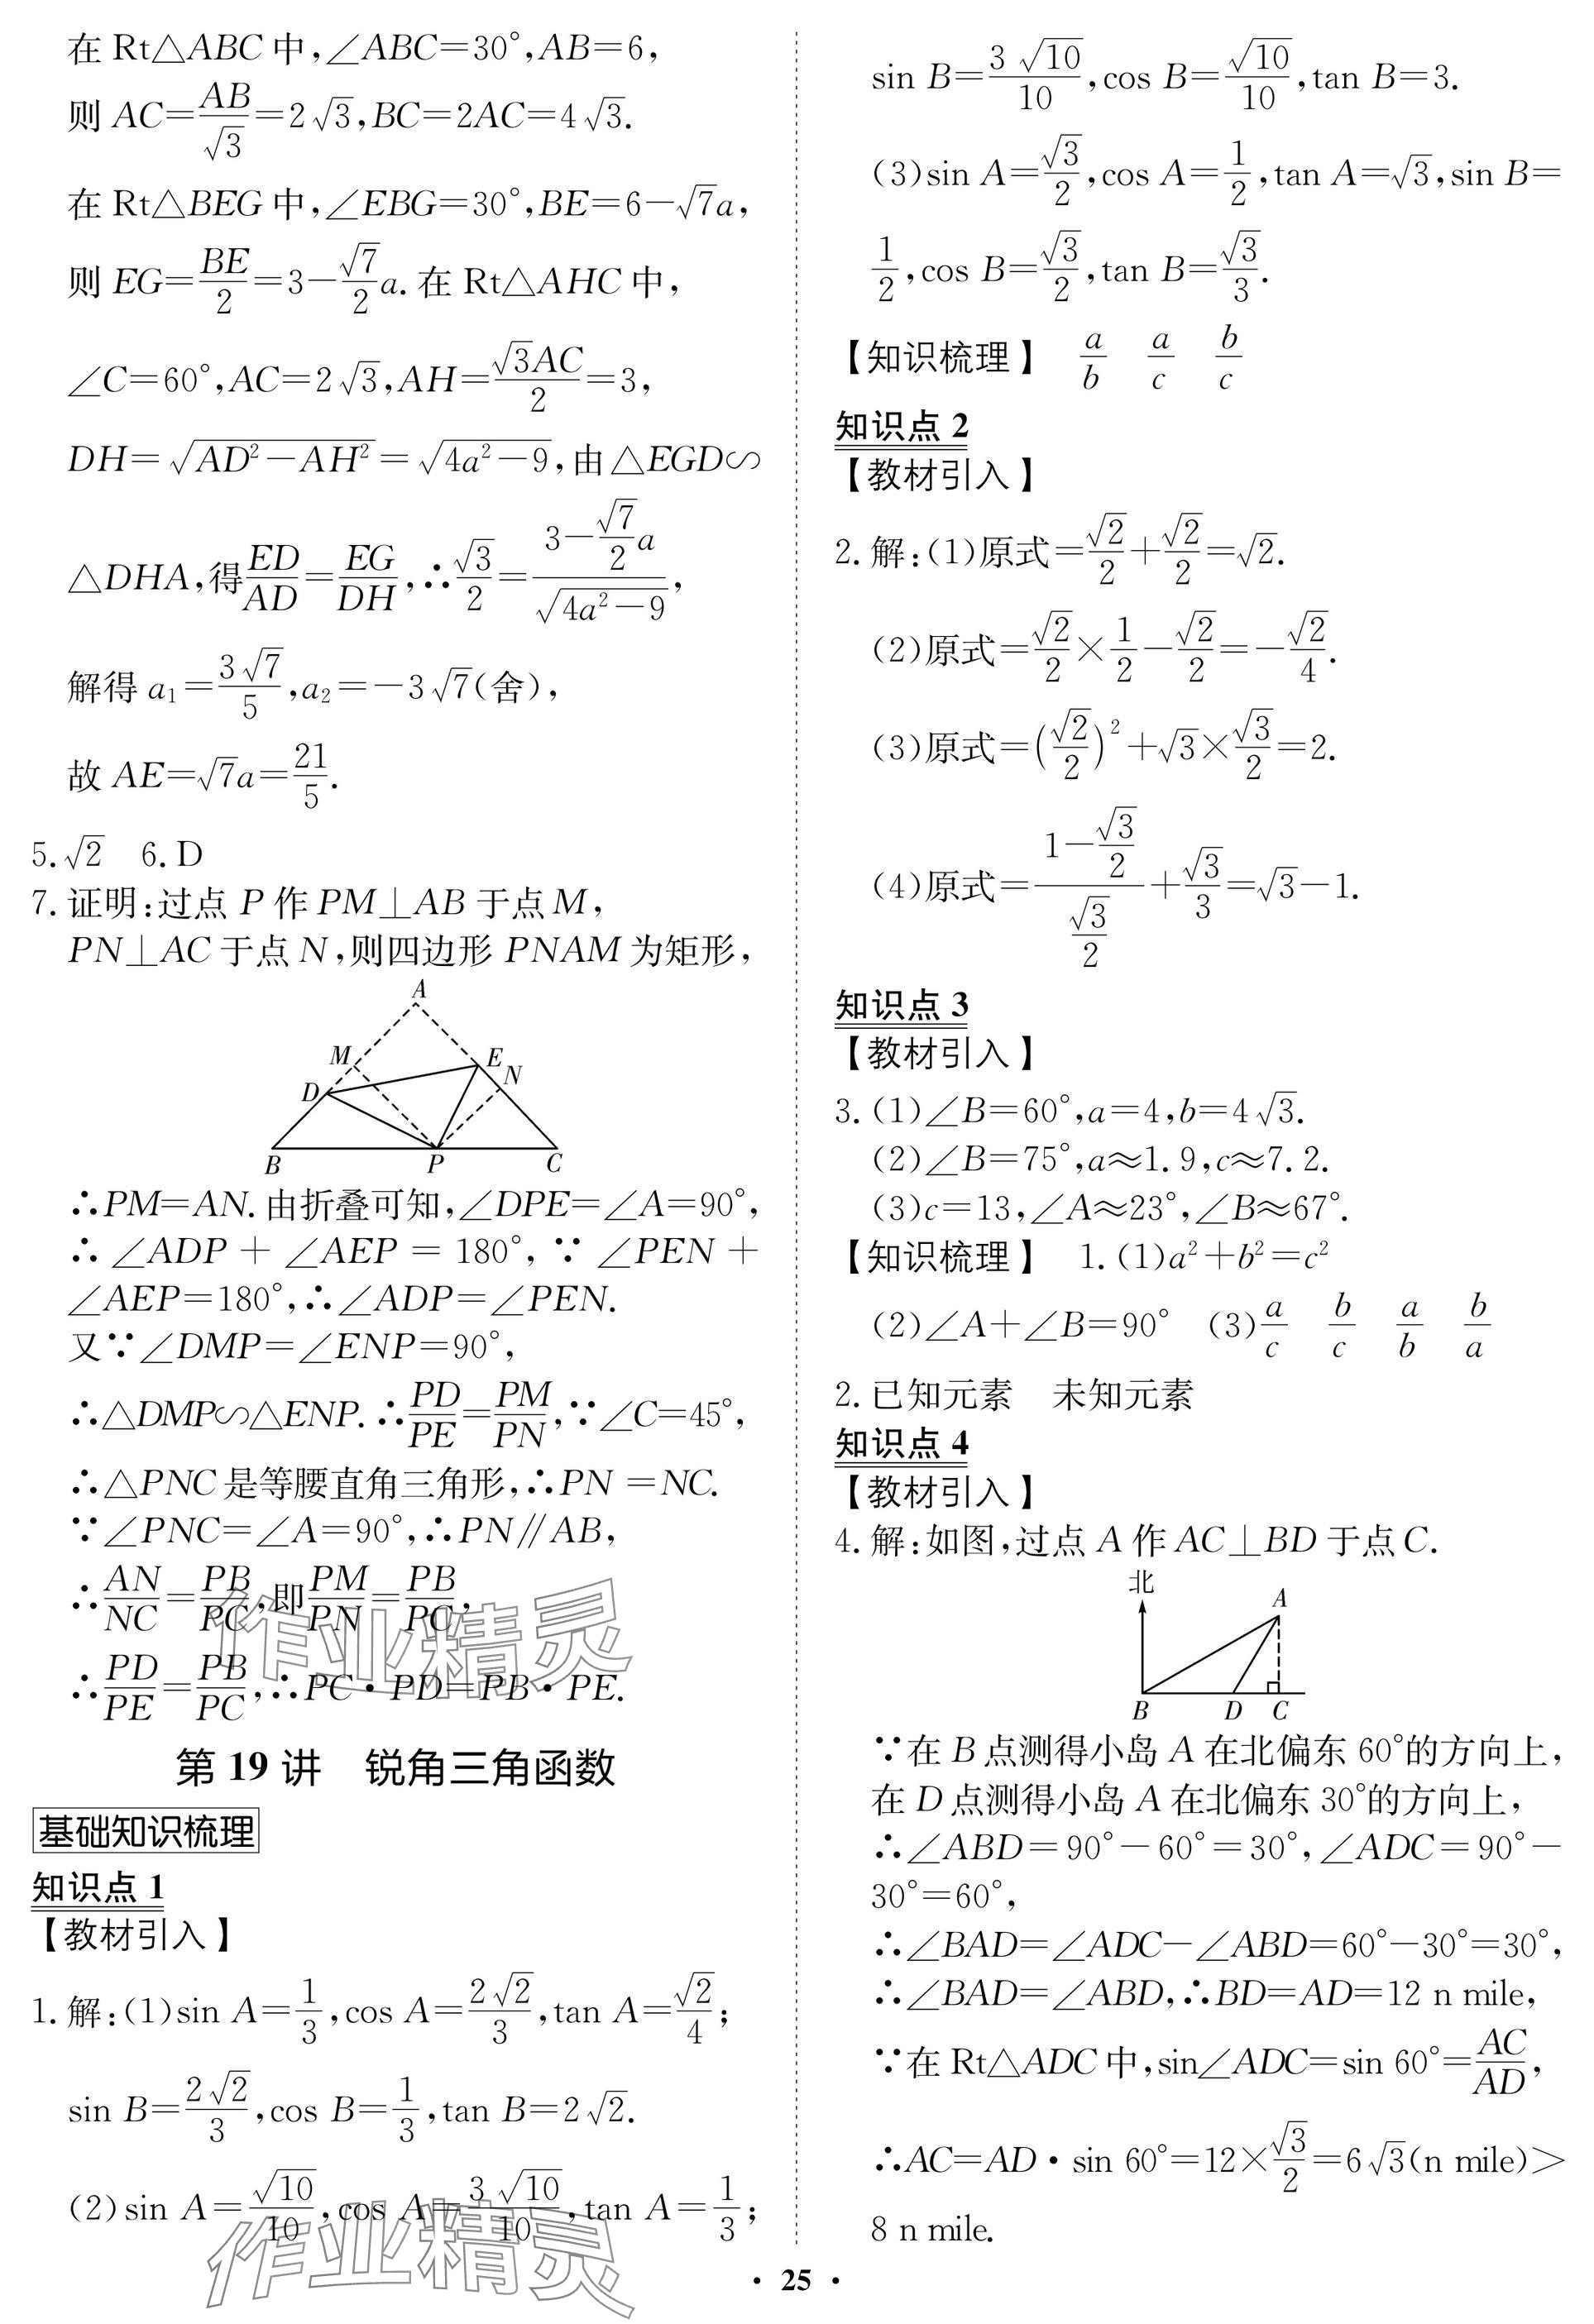 在 Rt△ABC 中,∠ABC=30°,AB=6,
则 AC=AB/√3=2√3,BC=2AC=4√3.
在 Rt△BEG 中,∠EBG=30°,BE=6-√7a,
则 EG=BE/2=3-(√7/2)a. 在 Rt△AHC 中,
∠C=60°,AC=2√3,AH=√3AC/2=3,
DH=√(AD²-AH²)=√(4a²-9),由△EGD∽
△DHA,得ED/AD=EG/DH,∴√3/2=(3-(√7/2)a)/√(4a²-9),
解得 a₁=3√7/5,a₂=-3√7(舍),
故 AE=√7a=21/5.
5.√2 6.D
7.证明:过点 P 作 PM⊥AB 于点 M,
PN⊥AC 于点 N,则四边形 PNAM 为矩形,
A
M
E
N
D
B
P
C
∴PM=AN.由折叠可知,∠DPE=∠A=90°,
∴ ∠ADP + ∠AEP = 180°, ∵ ∠PEN +
∠AEP=180°,∴∠ADP=∠PEN.
又∵∠DMP=∠ENP=90°,
∴△DMP∽△ENP.∴PD/PE=PM/PN,∵∠C=45°,
∴△PNC 是等腰直角三角形,∴PN =NC.
∵∠PNC=∠A=90°,∴PN∥AB,
∴AN/NC=PB/PC,即PM/PN=PB/PC,
∴PD/PE=PB/PC,∴PC·PD=PB·PE.
作业精灵
第 19 讲 锐角三角函数
基础知识梳理
知识点 1
【教材引入】
1.解:(1)sin A=1/3,cos A=2√2/3,tan A=√2/4;
sin B=2√2/3,cos B=1/3,tan B=2√2.
(2)sin A=√10/10,cos A=3√10/10,tan A=1/3;
作业精灵
sin B=3√10/10,cos B=√10/10,tan B=3.
(3)sin A=√3/2,cos A=1/2,tan A=√3,sin B=
1/2,cos B=√3/2,tan B=√3/3.
【知识梳理】 a/b a/c b/c
知识点 2
【教材引入】
2.解:(1)原式=√2/2+√2/2=√2.
(2)原式=√2/2×1/2-√2/2=-√2/4.
(3)原式=(√2/2)²+√3×√3/2=2.
(4)原式=(1-√3/2)/(√3/2)+√3/3=√3-1.
知识点 3
【教材引入】
3.(1)∠B=60°,a=4,b=4√3.
(2)∠B=75°,a≈1.9,c≈7.2.
(3)c=13,∠A≈23°,∠B≈67°.
【知识梳理】 1.(1)a²+b²=c²
(2)∠A+∠B=90° (3)a/c b/c a/b b/a
2.已知元素 未知元素
知识点 4
【教材引入】
4.解:如图,过点 A 作 AC⊥BD 于点 C.
北
A
B
D
C
∵在 B 点测得小岛 A 在北偏东 60°的方向上,
在 D 点测得小岛 A 在北偏东 30°的方向上,
∴∠ABD=90°-60°=30°,∠ADC=90°-
30°=60°,
∴∠BAD=∠ADC-∠ABD=60°-30°=30°,
∴∠BAD=∠ABD,∴BD=AD=12 n mile,
∵在 Rt△ADC 中,sin∠ADC=sin 60°=AC/AD,
∴AC=AD·sin 60°=12×√3/2=6√3(n mile)>
8 n mile.
· 25 ·